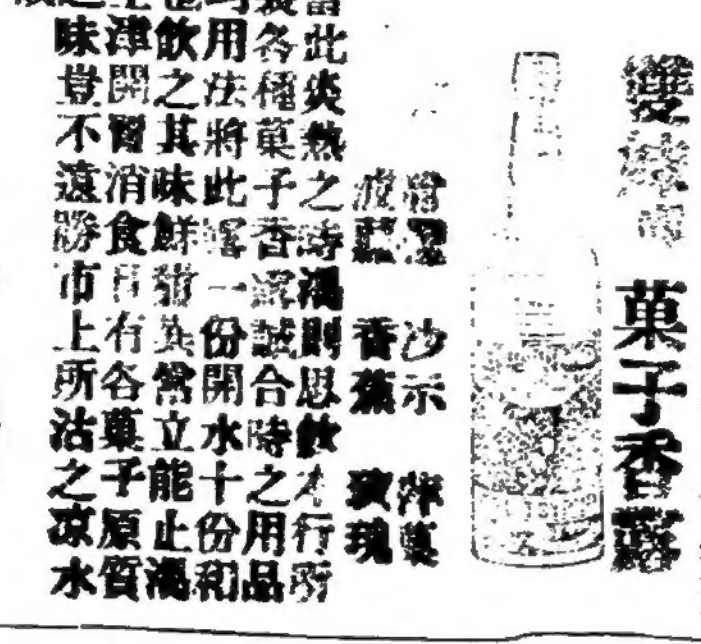 雙妹 菓子香露
沙示 蘋菓
波蘿 香蕉 玫瑰
當此炎熱之時渴則思飲本行所
製各種菓子香露誠合時之用品
用法將此露一份開水十份和
飲之其味鮮甜異常立能止渴
生津開胃消食且有各菓子原質
之味豈不遠勝市上所沽之凉水